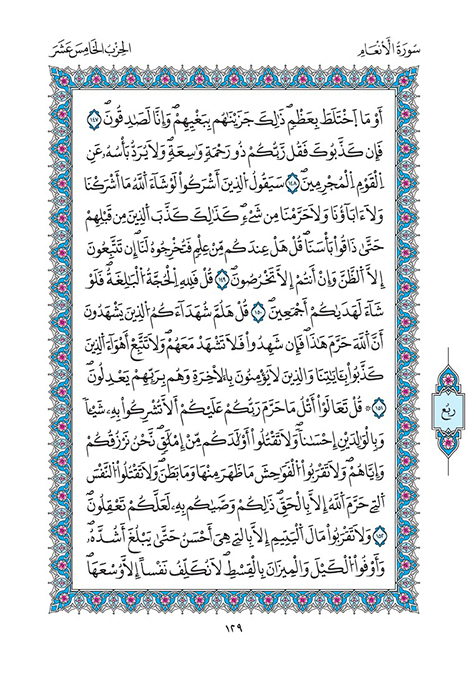 سُورَةُ الْأَنْعَامِ
الحِزْبُ الخَامِسَ عَشَرَ
أَوْ مَا اَ۪خْتَلَطَ بِعَظْمٖۖ ذَٰلِكَ جَزَيْنَٰهُم بِبَغْيِهِمْۖ وَإِنَّا لَصَٰدِقُونَۖ ١٤٧
فَإِن كَذَّبُوكَ فَقُل رَّبُّكُمْ ذُو رَحْمَةٖ وَٰسِعَةٖۖ وَلَا يُرَدُّ بَأْسُهُۥ عَنِ
اِ۬لْقَوْمِ اِ۬لْمُجْرِمِينَۖ ١٤٨ سَيَقُولُ اُ۬لذِينَ أَشْرَكُواْ لَوْ شَآءَ اَ۬للَّهُ مَآ أَشْرَكْنَا
وَلَآ ءَابَآؤُنَا وَلَا حَرَّمْنَا مِن شَےْءٖۖ كَذَٰلِكَ كَذَّبَ اَ۬لذِينَ مِن قَبْلِهِمْ
حَتَّىٰ ذَاقُواْ بَأْسَنَاۖ قُلْ هَلْ عِندَكُم مِّنْ عِلْمٖ فَتُخْرِجُوهُ لَنَآۖ إِن تَتَّبِعُونَ
إِلَّا اَ۬لظَّنَّ وَإِنَ اَنتُمُۥٓ إِلَّا تَخْرُصُونَۖ ١٤٩ قُلْ فَلِلهِ اِ۬لْحُجَّةُ اُ۬لْبَٰلِغَةُۖ فَلَوْ
شَآءَ لَهَدَيٰكُمُۥٓ أَجْمَعِينَۖ ١٥٠ قُلْ هَلُمَّ شُهَدَآءَكُمُ اُ۬لذِينَ يَشْهَدُونَ
أَنَّ اَ۬للَّهَ حَرَّمَ هَٰذَاۖ فَإِن شَهِدُواْ فَلَا تَشْهَدْ مَعَهُمْۖ وَلَا تَتَّبِعَ اَهْوَآءَ اَ۬لذِينَ
كَذَّبُواْ بِـَٔايَٰتِنَا وَالذِينَ لَا يُومِنُونَ بِالَاخِرَةِ وَهُم بِرَبِّهِمْ يَعْدِلُونَۖ
١٥١ قُلْ تَعَالَوَاْ اَتْلُ مَا حَرَّمَ رَبُّكُمْ عَلَيْكُمُۥٓ أَلَّا تُشْرِكُواْ بِهِۦ شَيْـٔاٗ
وَبِالْوَٰلِدَيْنِ إِحْسَٰناٗۖ وَلَا تَقْتُلُوٓاْ أَوْلَٰدَكُم مِّنِ اِمْلَٰقٖۖ نَّحْنُ نَرْزُقُكُمْ
وَإِيَّاهُمْۖ وَلَا تَقْرَبُواْ اُ۬لْفَوَٰحِشَ مَا ظَهَرَ مِنْهَا وَمَا بَطَنَۖ وَلَا تَقْتُلُواْ اُ۬لنَّفْسَ
اَ۬لتِے حَرَّمَ اَ۬للَّهُ إِلَّا بِالْحَقِّۖ ذَٰلِكُمْ وَصَّيٰكُم بِهِۦ لَعَلَّكُمْ تَعْقِلُونَۖ
١٥٢ وَلَا تَقْرَبُواْ مَالَ اَ۬لْيَتِيمِ إِلَّا بِالتِے هِيَ أَحْسَنُ حَتَّىٰ يَبْلُغَ أَشُدَّهُۥۖ
وَأَوْفُواْ اُ۬لْكَيْلَ وَالْمِيزَانَ بِالْقِسْطِۖ لَا نُكَلِّفُ نَفْساً اِلَّا وُسْعَهَاۖ
ربع
١٢٩